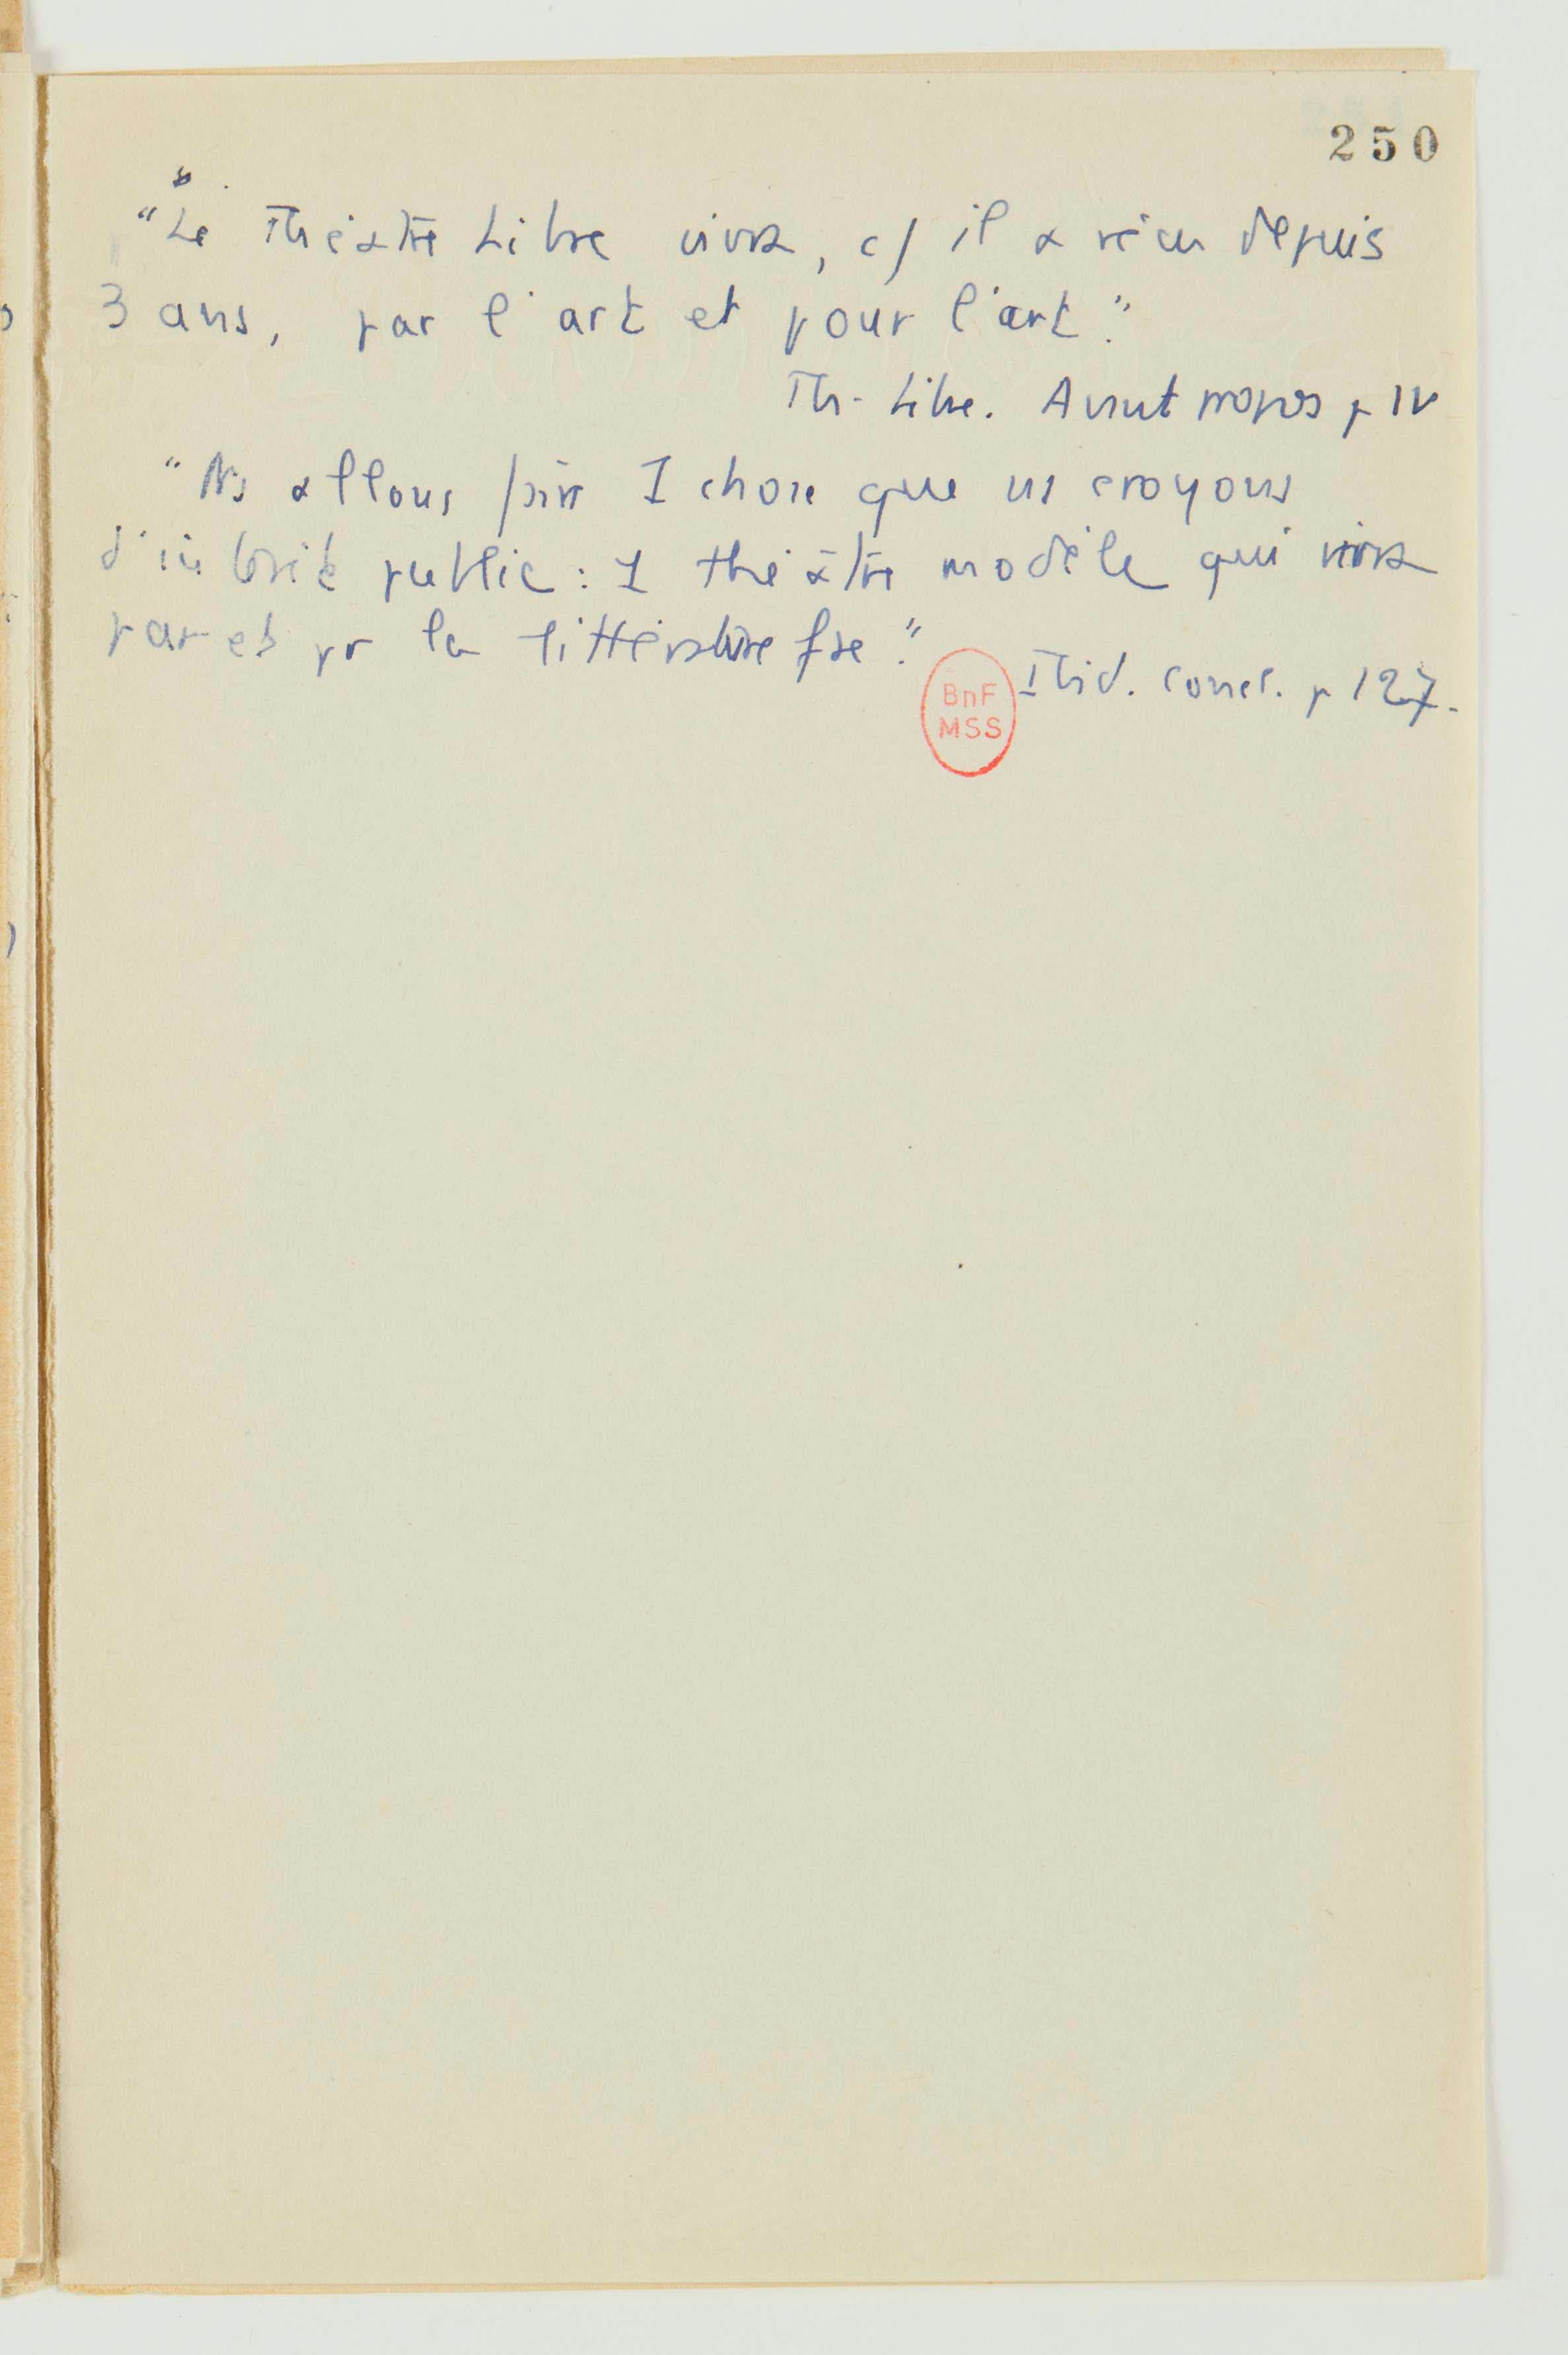 250
"Le Théâtre Libre vivra, c/ il a vécu depuis
3 ans, par l'art et pour l'art."
Th. Libre. Avant propos p IV
"Ns allons faire 1 chose que ns croyons
d'intérêt public : 1 théâtre modèle qui vivra
par et pr la littérature fse."
Ibid. concl. p 127.
BnF
MSS